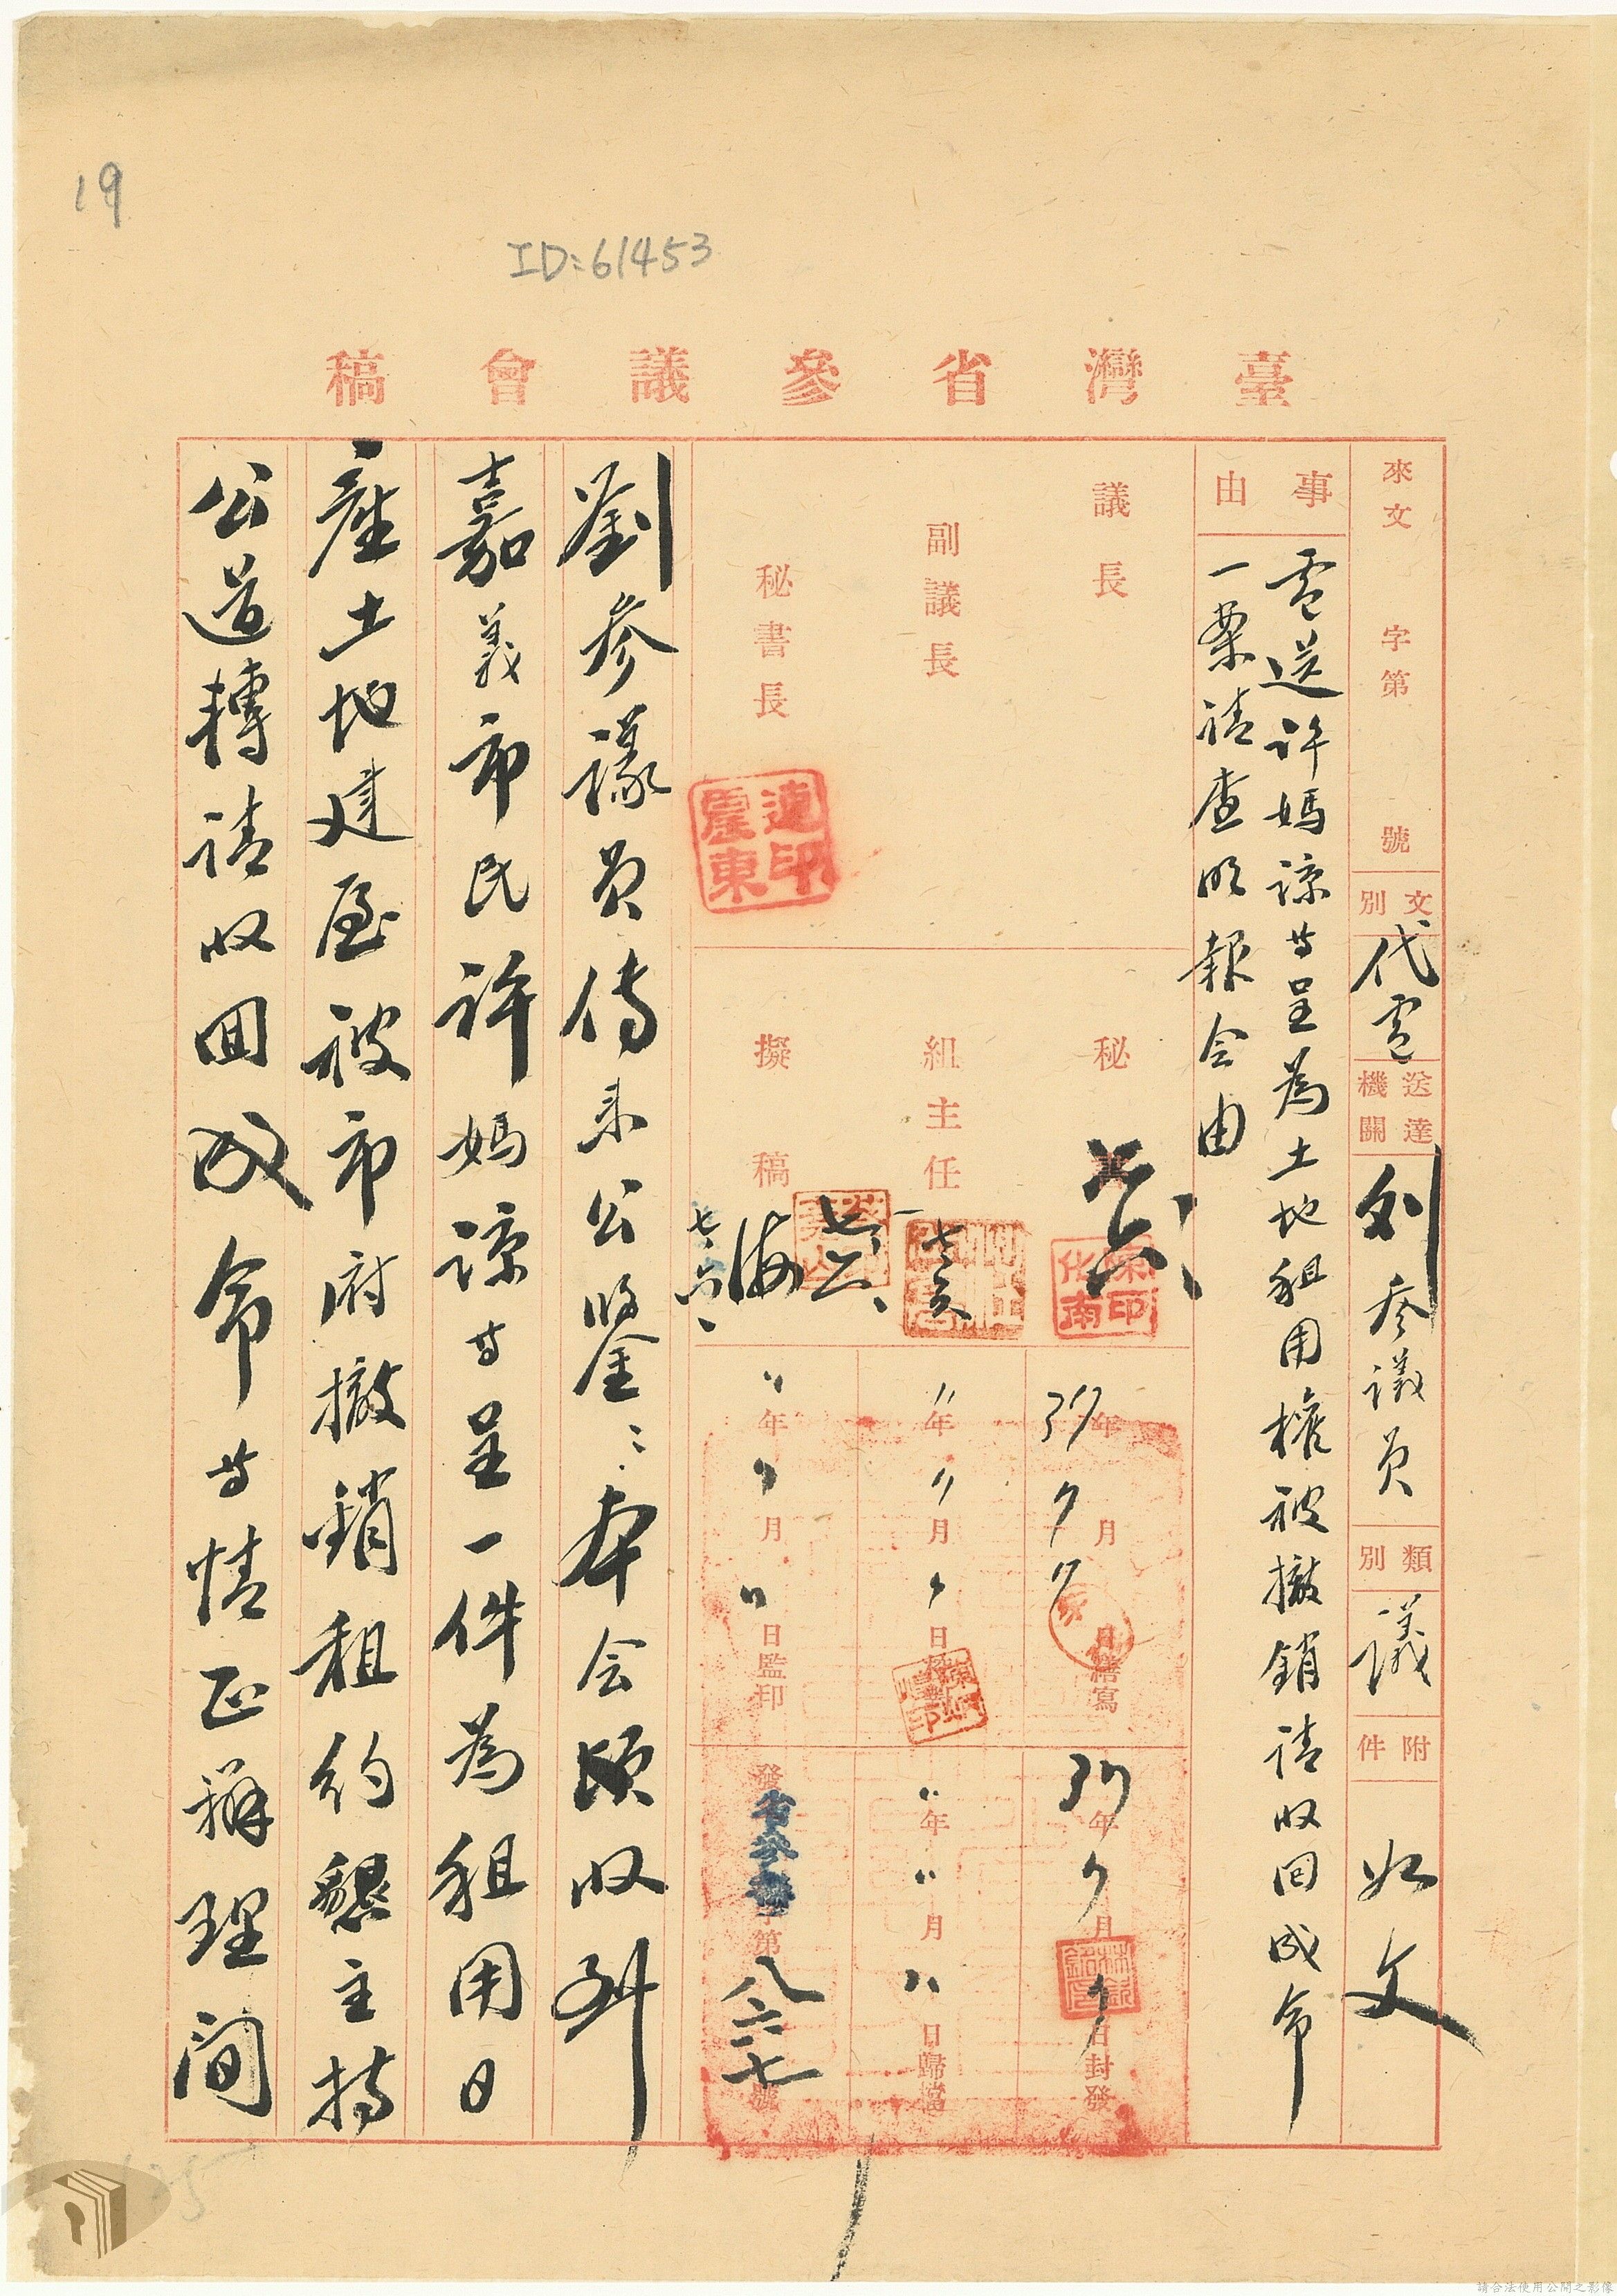 19
ID:61453
臺灣省參議會稿
來文 字第 號
文別 代電
送達機關 劉參議員
類別 議
附件 如文
事由
電送許媽諒等呈為土地租用權被撤銷請收回成命
一案請查明報會由
議長
副議長
秘書長
連震東印
秘書
組主任
擬稿
37年7月7日繕寫
〃年〃月〃日校對
〃年〃月〃日監印
37年7月7日封發
〃年〃月〃日歸檔
發文省參議字第八六一七號
劉參議員傳來公鑒:本會頃收到
嘉義市民許媽諒等呈一件為租用日
產土地建屋被市府撤銷租約懇主持
公道轉請收回成命等情正辦理間
請合法使用公開之影像